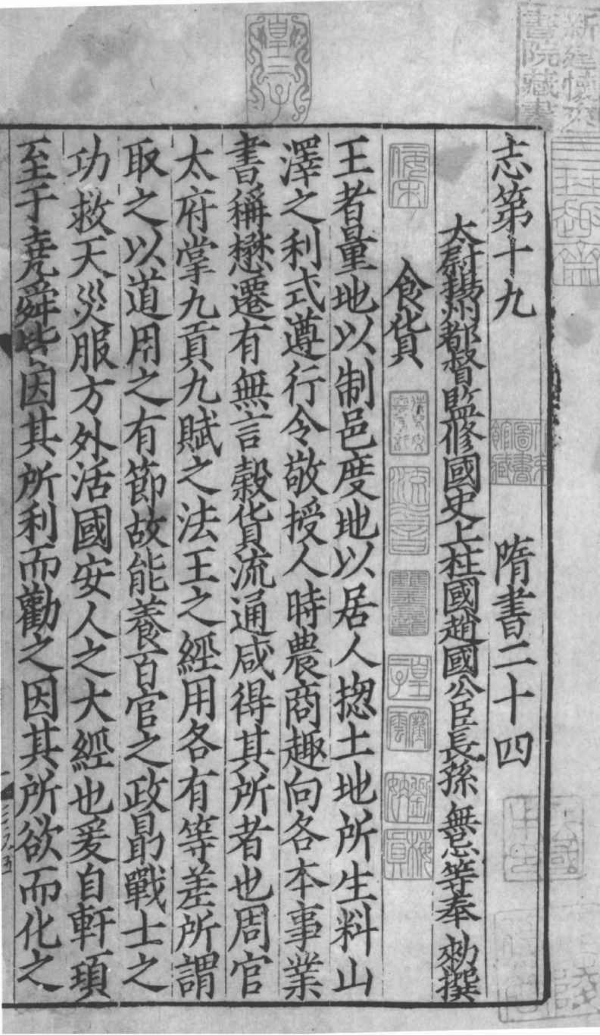 志第十九 隋書二十四
太尉揚州都督監修國史上柱國趙國公臣長孫無忌等奉勑撰
食貨
王者量地以制邑度地以居人揔土地所生料山
澤之利式遵行令敬授人時農商趣向各本事業
書稱懋遷有無言穀貨流通咸得其所者也周官
太府掌九貢九賦之法王之經用各有等差所謂
取之以道用之有節故能養百官之政勗戰士之
功救天災服方外活國安人之大經也爰自軒頊
至于堯舜皆因其所利而勸之因其所欲而化之